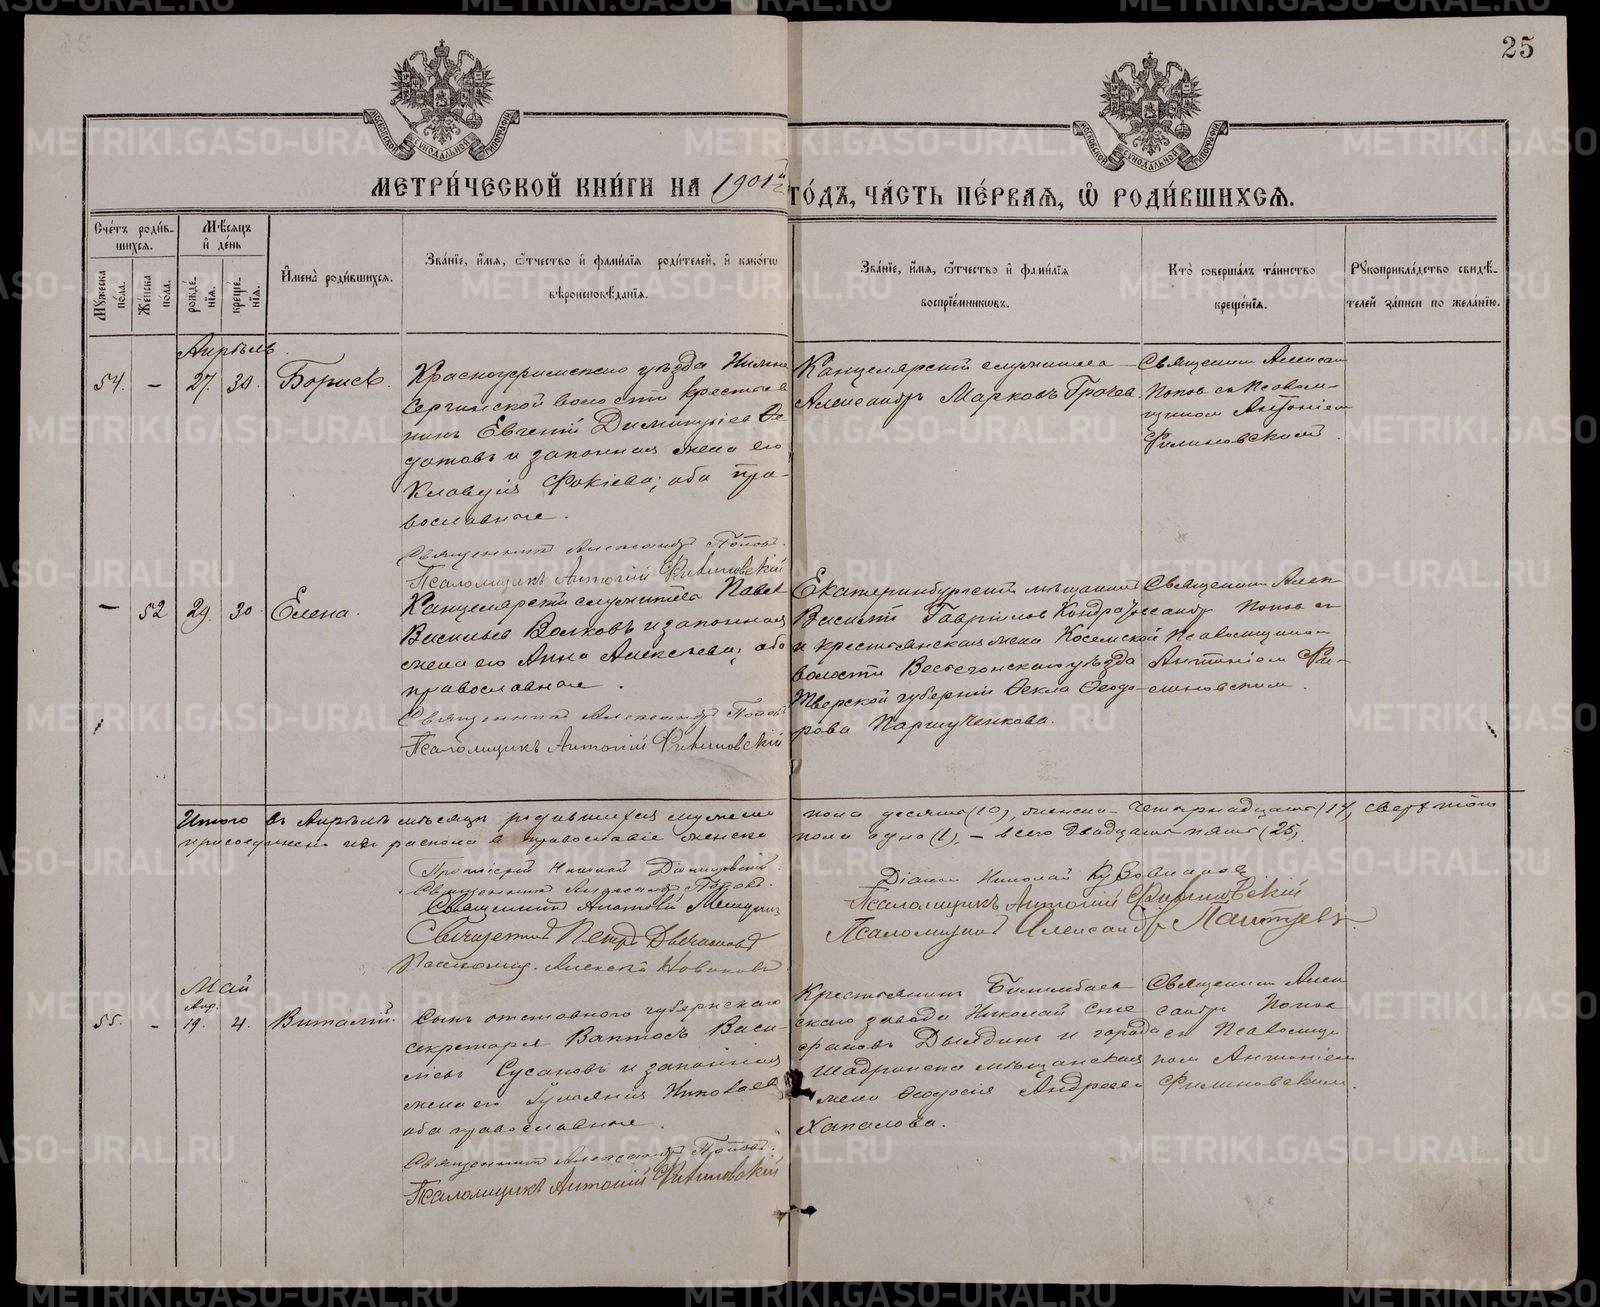 25
МОСКОВСКОЙ СѴНОДАЛЬНОЙ ТИПОГРАФІИ
МОСКОВСКОЙ СѴНОДАЛЬНОЙ ТИПОГРАФІИ
МЕТРИ́ЧЕСКОЙ КНИ́ГИ НА 1901й ГО́ДЪ, ЧА́СТЬ ПЕ́РВАЯ, Ѡ РОДИ́ВШИХСЯ.
Сче́тъ роди́в-
шихся.
Мѣ́сяцъ
и҆ де́нь
Мꙋ́жеска
по́ла.
Же́нска
по́ла.
рожде́-
нїѧ.
креще́-
нїѧ.
И҆мена̀ роди́вшихся.
Зва́нїе, и҆́мѧ, ѻ҆́тчество и҆ фами́лїѧ роди́телей, и҆ како́гѡ
вѣроисповѣ́данїѧ.
Зва́нїе, и҆́мѧ, ѻ҆́тчество и҆ фами́лїѧ
воспрїе́мникѡвъ.
Кто̀ соверша́лъ та́инство
креще́нїѧ.
Рꙋкоприкла́дство свидѣ́-
телей за́писи по жела́нїю.
Апрѣль.
54. – 27. 30. Борисъ.
Красноуфимскаго уѣзда Нижне
Сергинской волости крестья
нинъ Евгеній Димитріев Ѳе
дотовъ и законная жена его
Клавдія Фокіева; оба пра-
вославные.
Священникъ Александръ Поповъ.
Псаломщикъ Антоній Филиновскій
Канцелярскій служитель
Александръ Марковъ Грачев.
Священник Алексан
Попов съ Псалом-
щиком Антоніем
Филиновским.
– 52 29. 30. Елена.
Канцелярскій служитель Павел
Васильев Волковъ и законная
жена его Анна Алексѣева; оба
православные.
Священникъ Александръ Поповъ
Псаломщикъ Антоній Филиновскій
Екатеринбургскій мѣщанин
Василій Гавриилов Кондра
и крестьянская жена Косемской
волости Весьегонскаго уѣзда
Тверской губерніи Ѳекла Ѳеодо-
рова Паршученкова.
Священник Алек-
сандр Попов съ
Псаломщиком
Антоніем Фи-
линовским.
Итого въ Апрѣлѣ мѣсяцѣ родившихся мужеска пола десять (10), женска – четырнадцать (14), сверх того
присоединена из раскола в православіе женска пола одна (1), – всего двадцать пять (25).
Священникъ Александръ Поповъ.
Священникъ Петръ
Діакон Николай
Псаломщикъ Антоній Филиновскій
Псаломщикъ Александръ
Май
55. – Апр. 19. 4. Виталій.
Сынъ отставного губернскаго
секретаря Васи-
льев Сусанов и законная
жена его Іуліанія Николаев
оба православные.
Священникъ Александръ Поповъ.
Псаломщикъ Антоній Филиновскій
Крестьянинъ Билимбаев
скаго завода Николай Сте
фановъ Дылдинъ и города
Шадринска мѣщанская
жена Ѳеодосія Андреева
Хапалова.
Священник Алек
сандръ Попов
съ Псаломщи
ком Антоніем
Филиновским.
METRIKI.GASO-URAL.RU